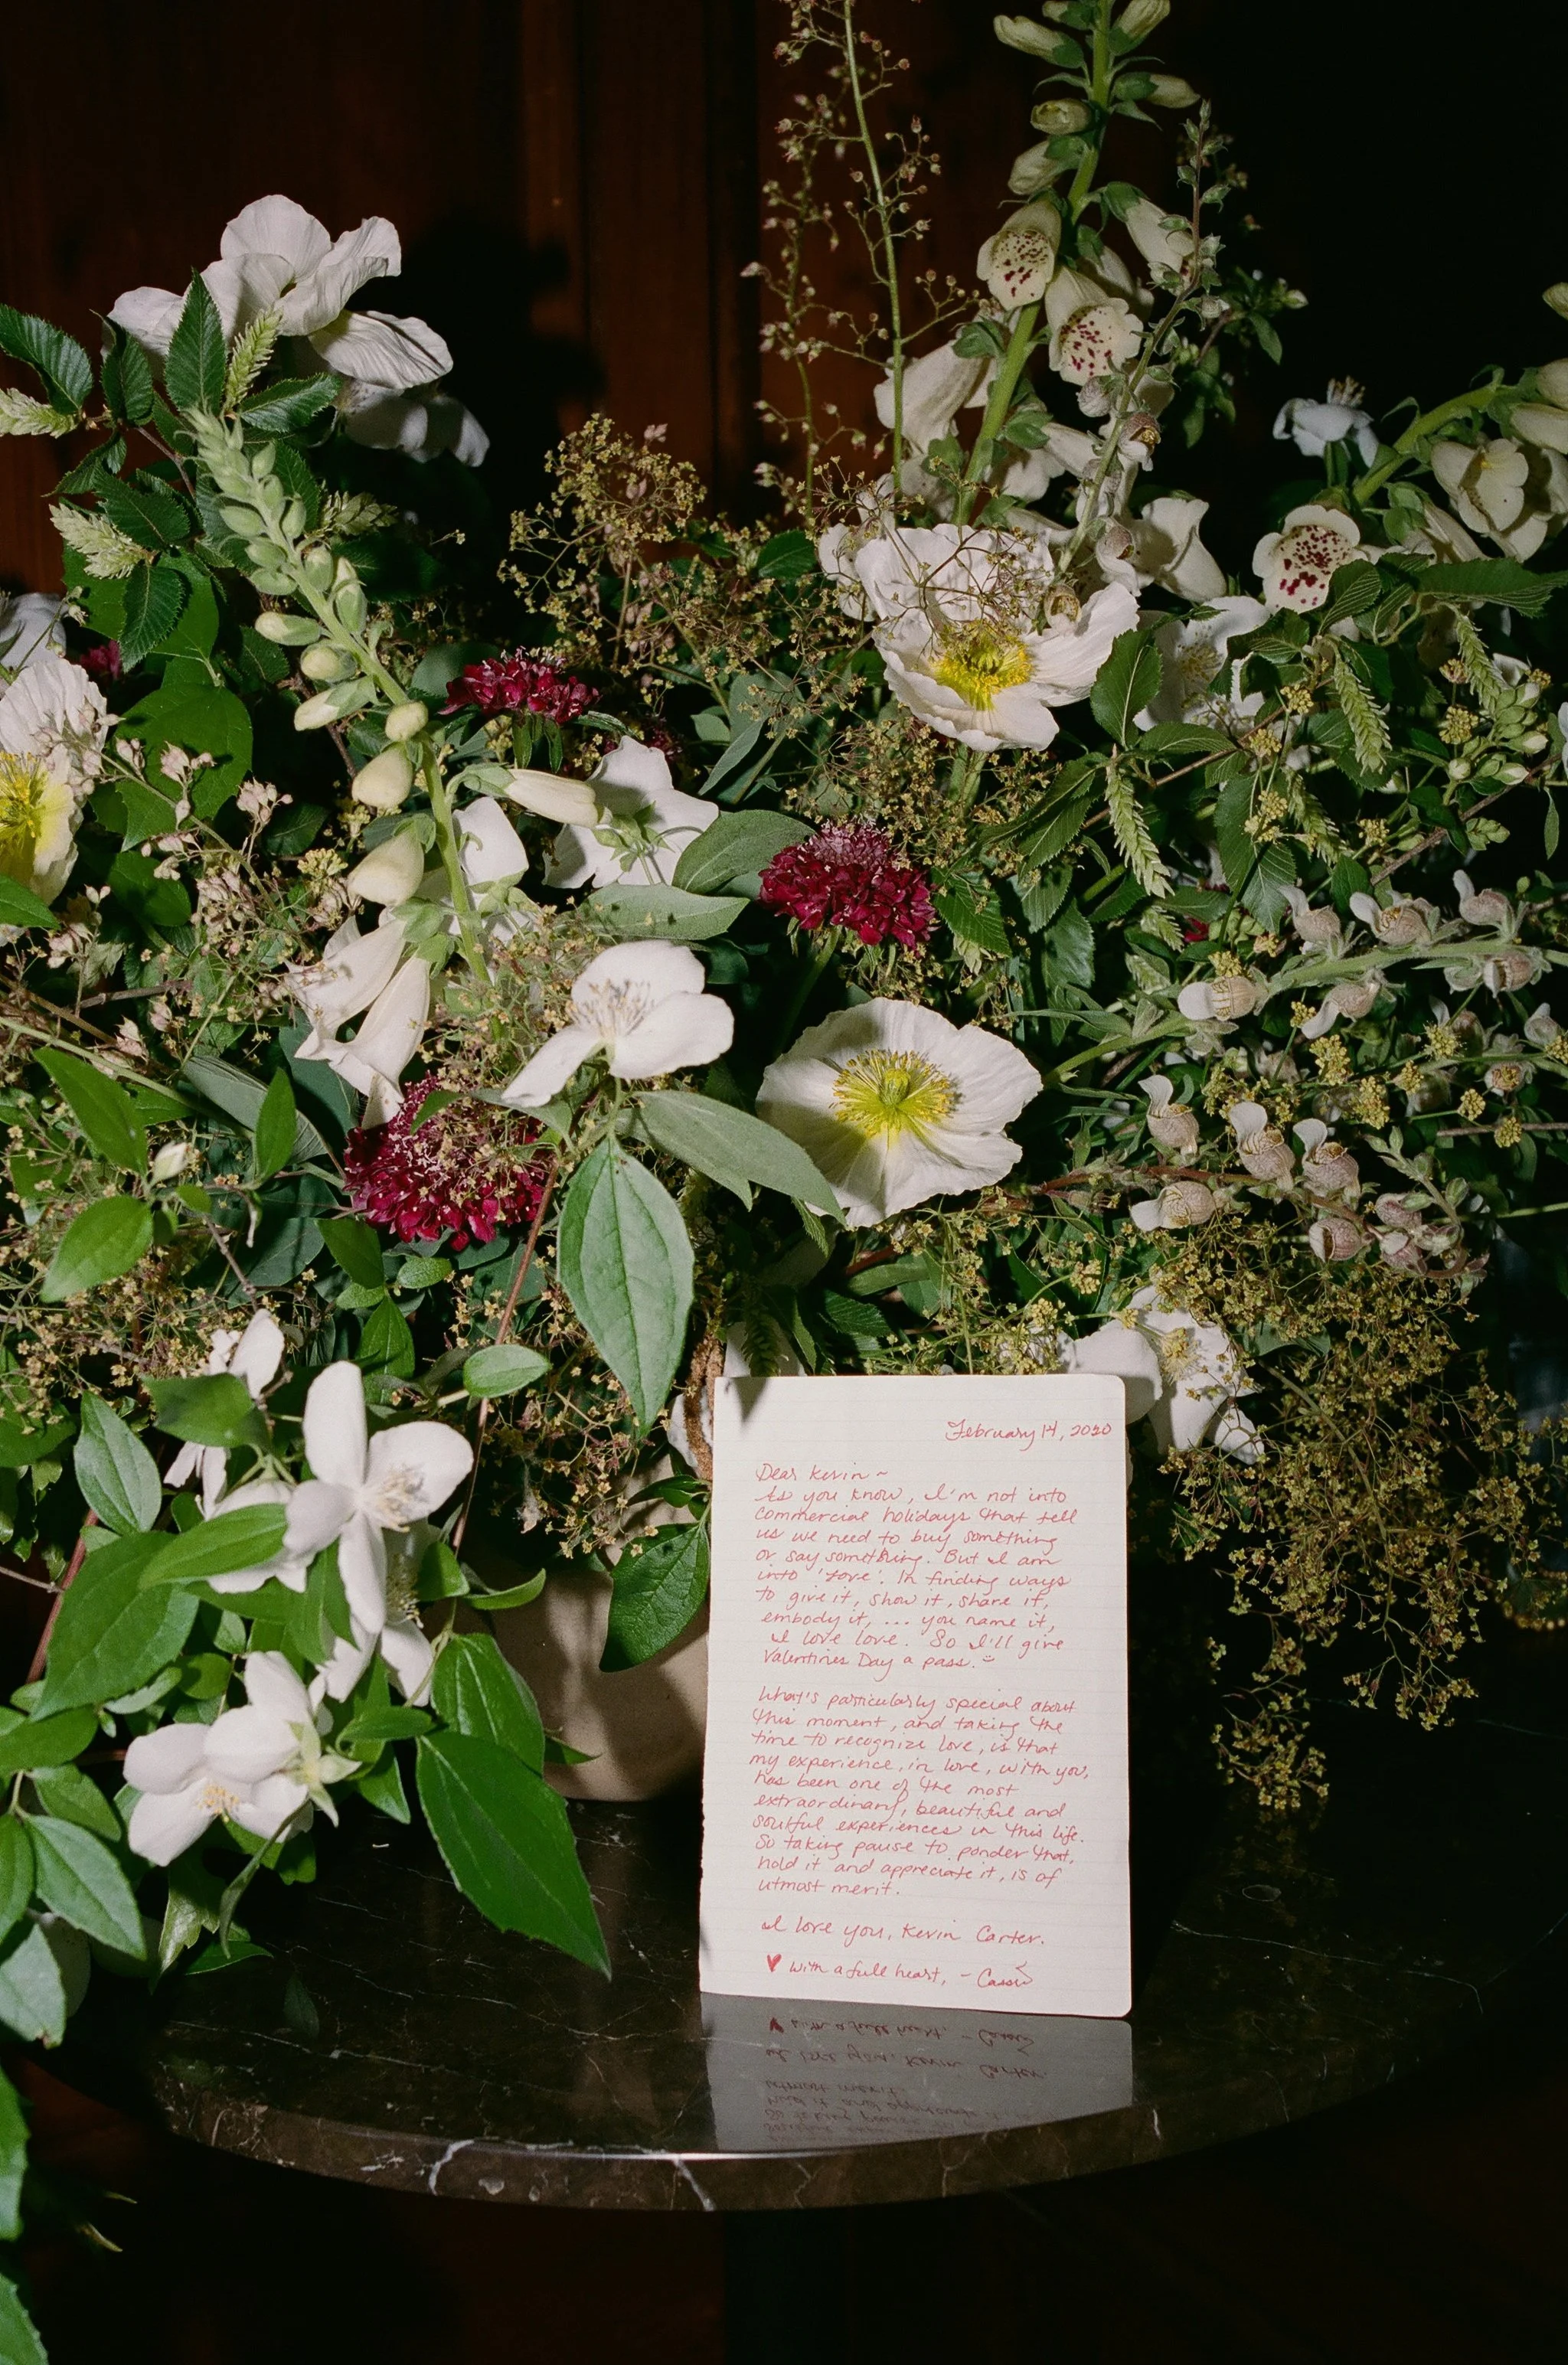 February 14, 2020
Dear Kevin ~
As you know, I'm not into
commercial holidays that tell
us we need to buy something
or say something. But I am
into 'love'. In finding ways
to give it, show it, share it,
embody it, ... you name it,
I love love. So I'll give
Valentines Day a pass.
What's particularly special about
this moment, and taking the
time to recognize love, is that
my experience, in love, with you,
has been one of the most
extraordinary, beautiful and
soulful experiences in this life.
So taking pause to ponder that,
hold it and appreciate it, is of
utmost merit.
I love you, Kevin Carter.
♥ with a full heart, - Cassie